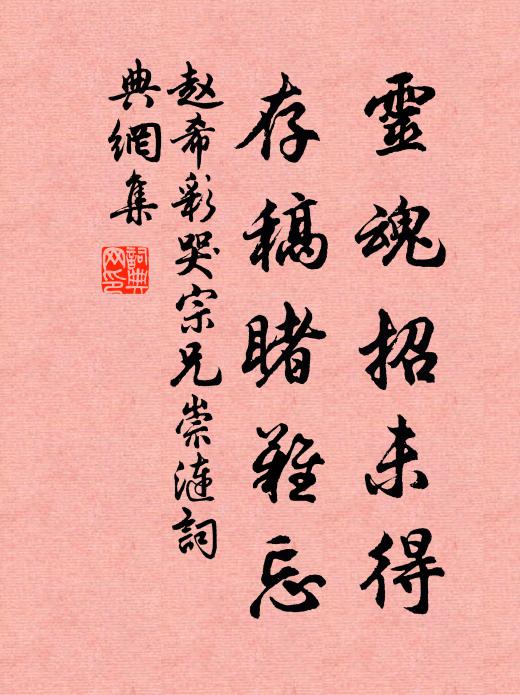 靈魂招未得
存稿睹難忘
赵希彩哭宗兄崇涟詞
典網集
詞典
网印